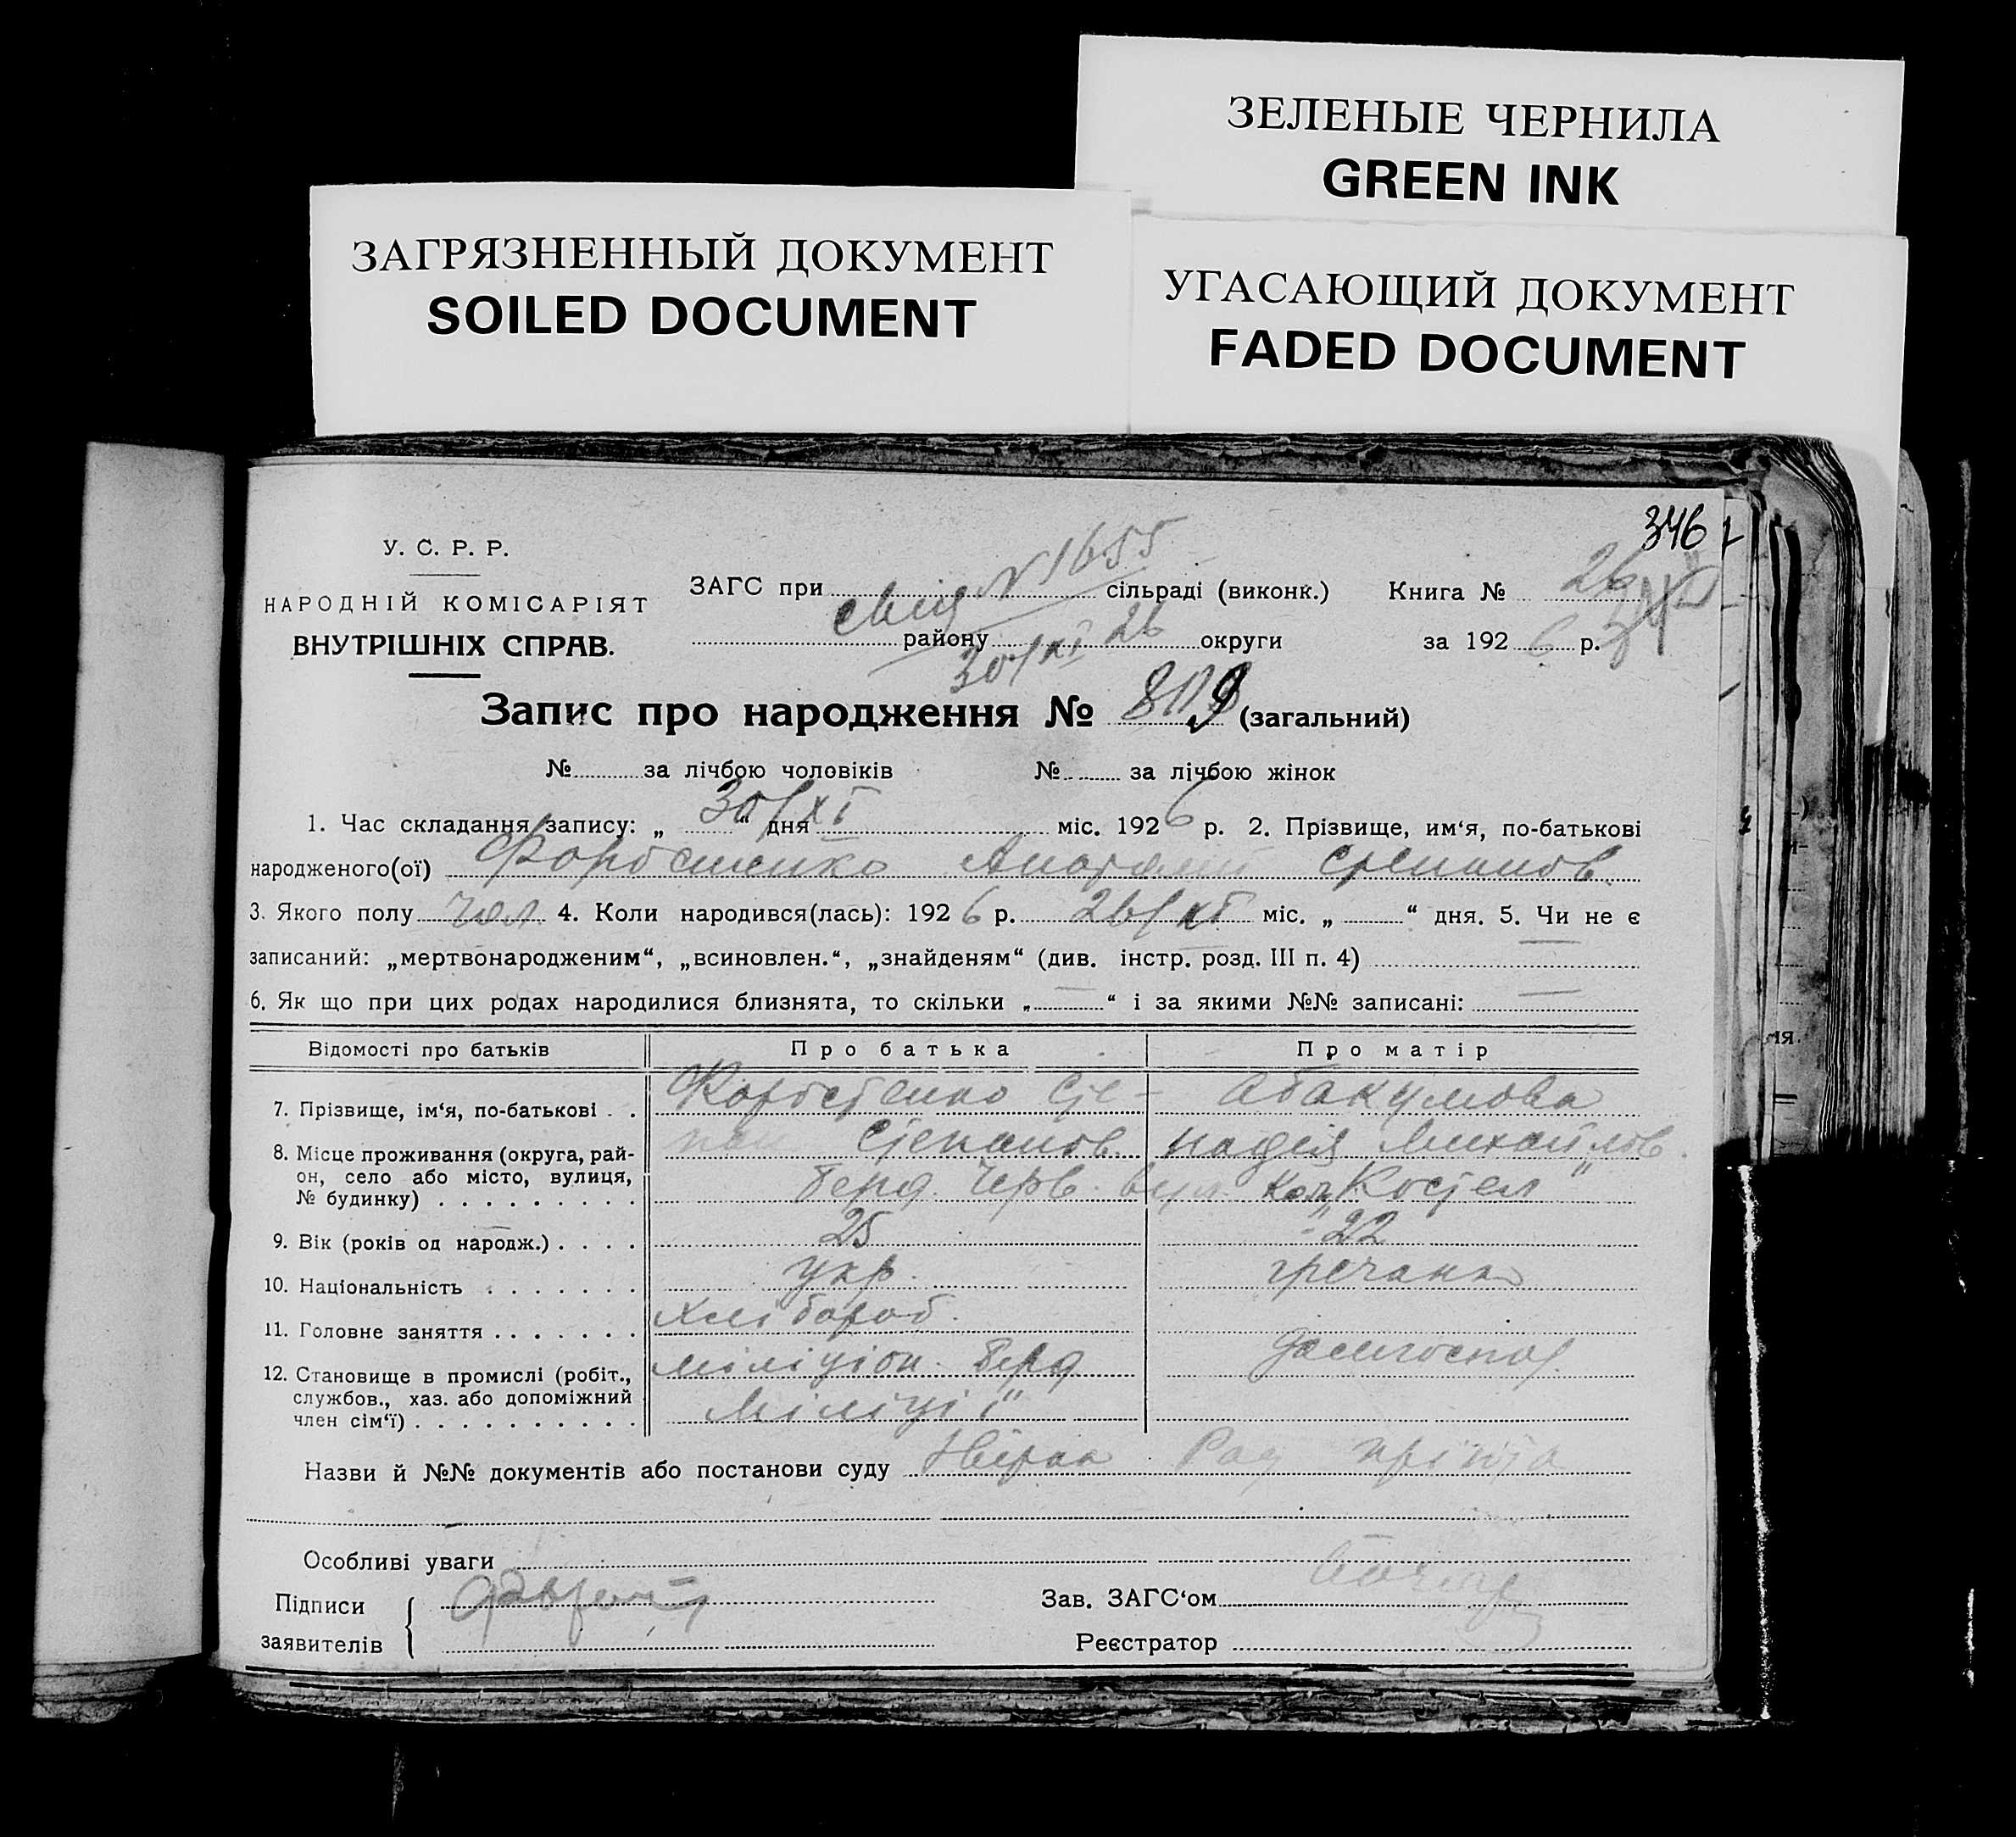 ЗЕЛЕНЫЕ ЧЕРНИЛА
GREEN INK
ЗАГРЯЗНЕННЫЙ ДОКУМЕНТ
SOILED DOCUMENT
УГАСАЮЩИЙ ДОКУМЕНТ
FADED DOCUMENT
346
У. С. Р. Р.
НАРОДНІЙ КОМІСАРІЯТ
ВНУТРІШНІХ СПРАВ.
N 1655
ЗАГС при сільраді (виконк.) Книга № 26
району округи за 192 6 р.
30/XI 26
Запис про народження № (загальний)
№ за лічбою чоловіків № за лічбою жінок
1. Час складання запису: „ 30/XI “ дня міс. 1926 р. 2. Прізвище, им‘я, по-батькові
народженого(ої) Анатолій Степанов.
3. Якого полу чол. 4. Коли народився(лась): 1926 р. 26/XI міс. „ “ дня. 5. Чи не є
записаний: „мертвонародженим“, „всиновлен.“, „знайденям“ (див. інстр. розд. III п. 4)
6. Як що при цих родах народилися близнята, то скільки „ — “ і за якими №№ записані: —
Відомості про батьків Про батька Про матір
7. Прізвище, ім‘я, по-батькові Сте- Абакумова
8. Місце проживання (округа, рай- пан Степанов. Надія Михайлов.
он, село або місто, вулиця, Берд. Черв. вул. Костел"
№ будинку)
9. Вік (років од народж.) 25 22
10. Національність укр. гречанка
11. Головне заняття хлібороб.
12. Становище в промислі (робіт., міліціон. Берд домогоспод.
службов., хаз. або допоміжний міліції"
член сім‘ї)
Назви й №№ документів або постанови суду
Особливі уваги
Підписи Зав. ЗАГС‘ом
заявителів Реєстратор